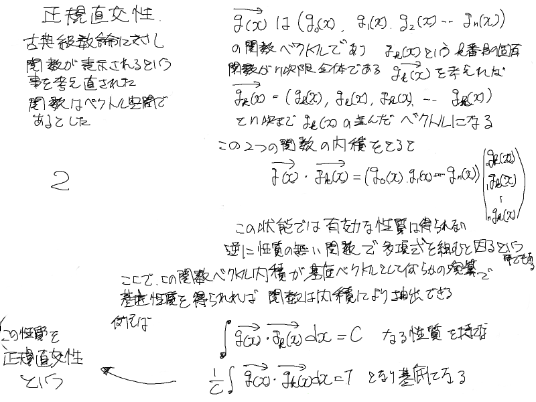 正規直交性
古典級数論に対し
関数が表示されるという
事を考え直された
関数はベクトル空間で
あるとした
2
g(x) は (g₀(x), g₁(x), g₂(x) … gₙ(x))
の関数ベクトルであり gₖ(x) という k番目の固有
関数がn次限全体である gₖ(x) を考えれば
gₖ(x) = (gₖ(x), gₖ(x), gₖ(x), … gₖ(x))
とn次まで gₖ(x) の並んだベクトルになる
この2つの関数の内積をとると
g(x)・gₖ(x) = (g₀(x) g₁(x) … gₙ(x)) (gₖ(x) gₖ(x) ⋮ gₖ(x))
この状態では有効な性質は得られない
逆に性質の無い関数で多項式を組むと困るという事である
ここで、この関数ベクトル内積が基底ベクトルとしてなんらかの演算で
基底性質を得られれば 関数は内積により抽出できる
例えば
∫ g(x)・gₖ(x) dx = C なる性質を持ち
1/C ∫ g(x)・gₖ(x) dx = 1 となり基底になる
この性質を
正規直交性
という